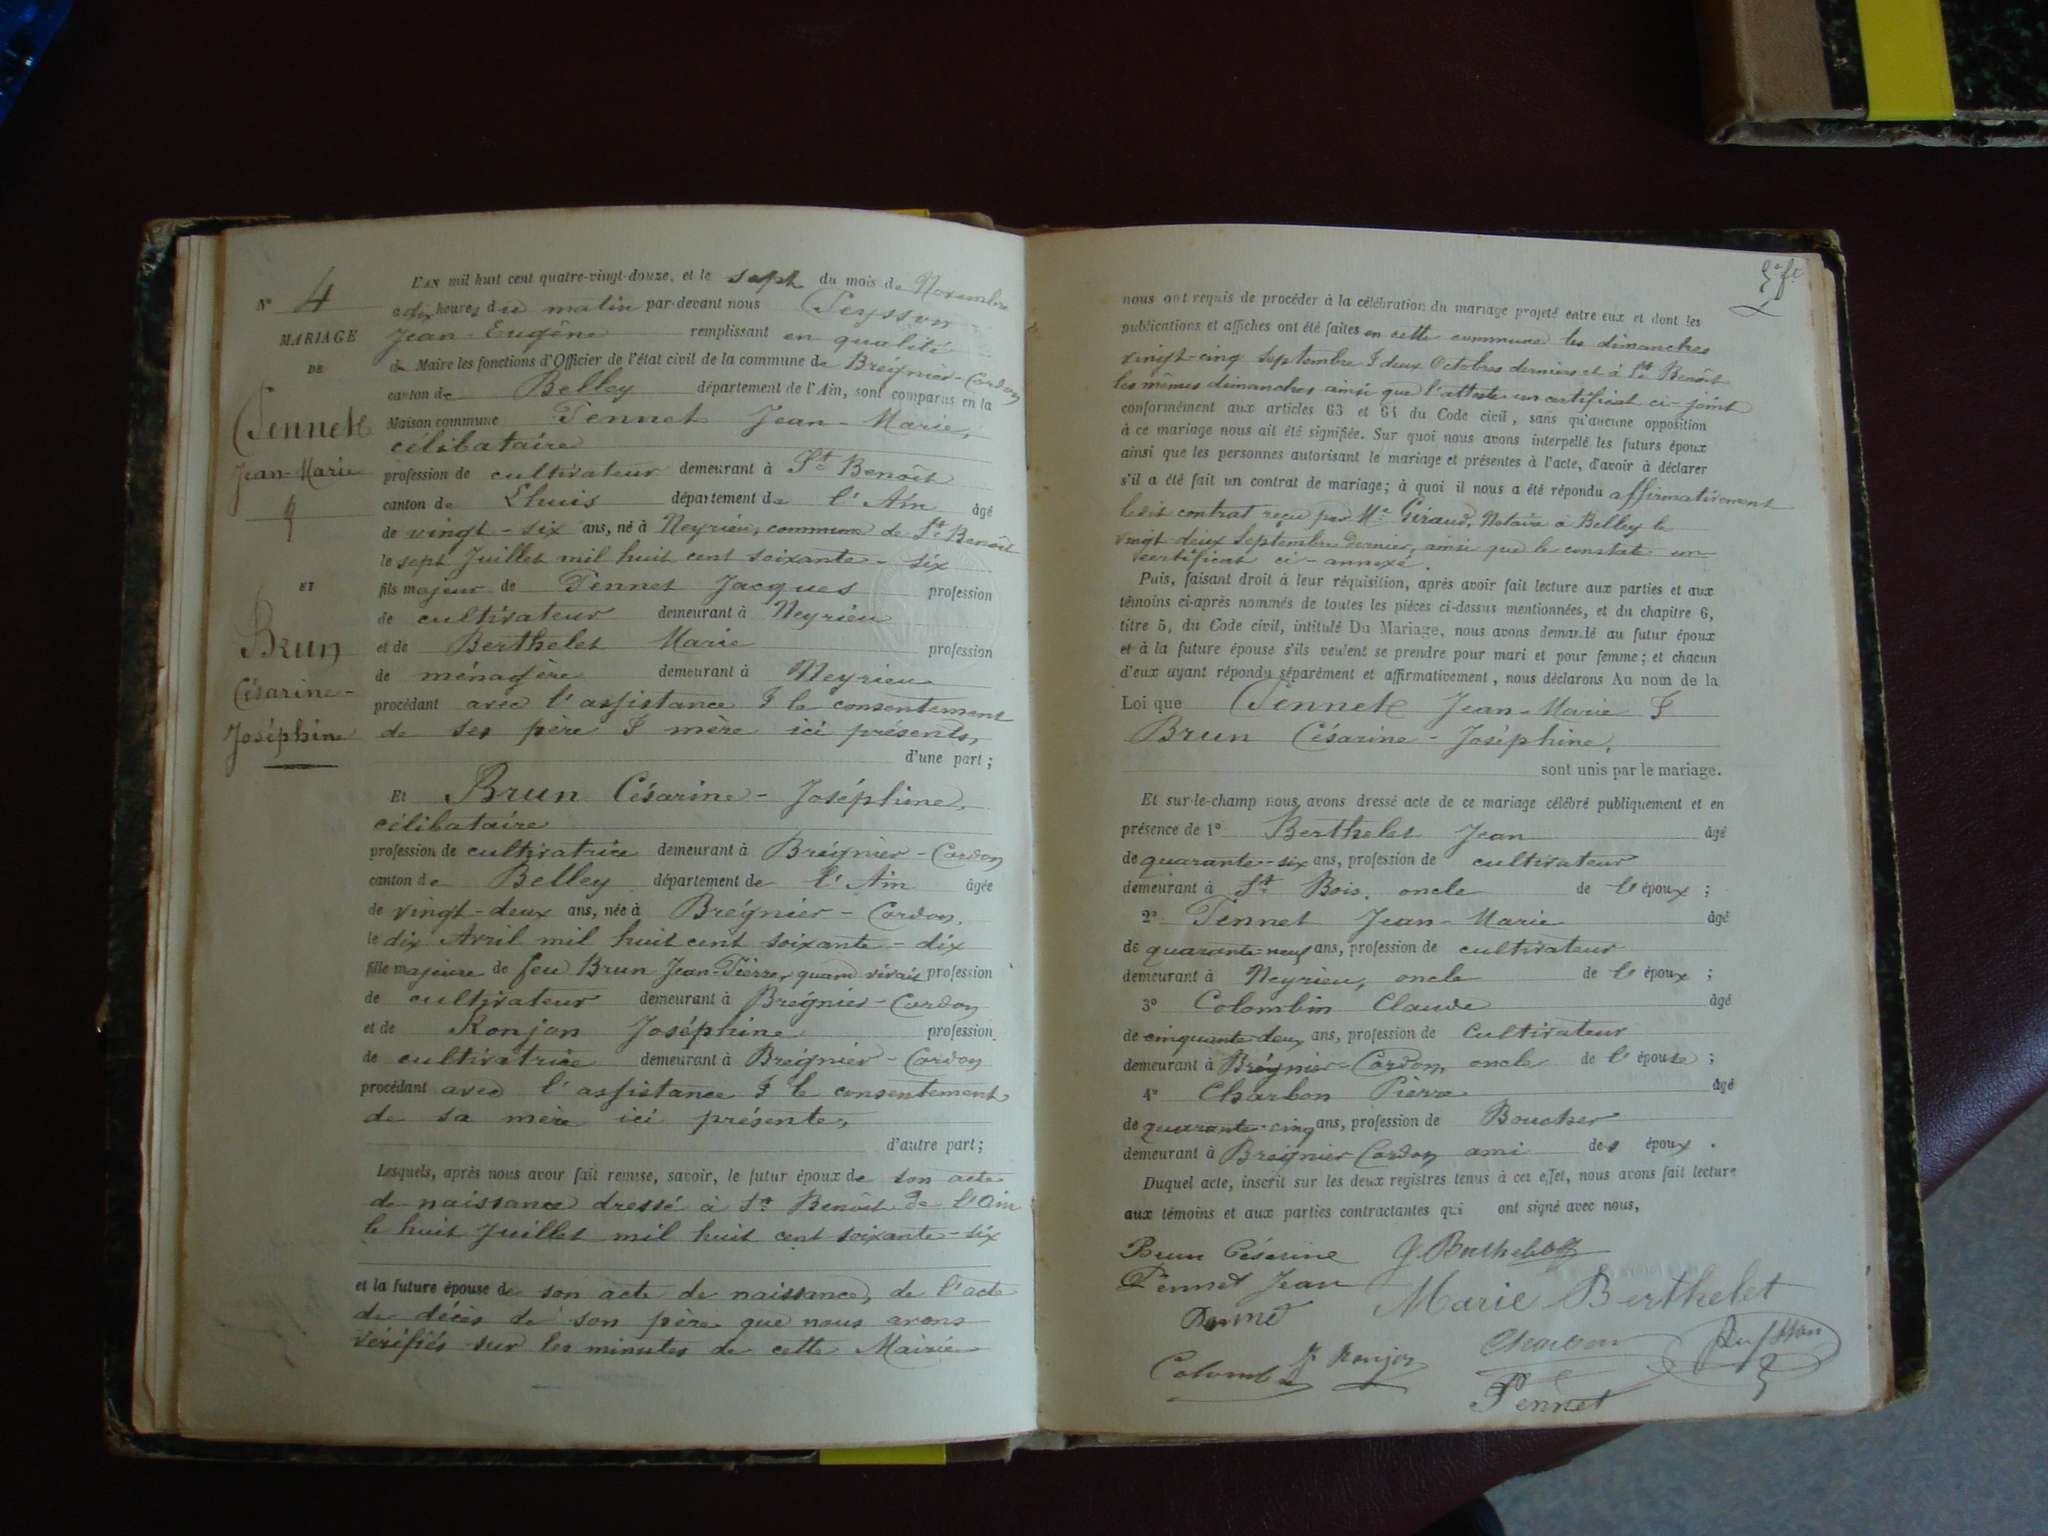 N° 4
MARIAGE
DE
Pennet
Jean-Marie
&
ET
Brun
Césarine-
Joséphine
L'AN mil huit cent quatre-vingt-douze, et le sept du mois de Novembre
a dix heures du matin par-devant nous Peysson
Jean Eugène remplissant en qualité
de Maire les fonctions d'Officier de l'état civil de la commune de Brégnier-Cordon
canton de Belley département de l'Ain, sont comparus en la
Maison commune Pennet Jean-Marie,
célibataire
profession de cultivateur demeurant à St Benoît
canton de Lhuis département de l'Ain âgé
de vingt-six ans, né à Neyrieu, commune de St Benoît
le sept Juillet mil huit cent soixante-six
fils majeur de Pennet Jacques profession
de cultivateur demeurant à Neyrieu
et de Berthelet Marie profession
de ménagère demeurant à Neyrieu
procédant avec l'assistance & le consentement
de ses père & mère ici présents,
d'une part ;
Et Brun Césarine-Joséphine,
célibataire
profession de cultivatrice demeurant à Brégnier-Cordon
canton de Belley département de l'Ain âgée
de vingt-deux ans, née à Brégnier-Cordon,
le dix Avril mil huit cent soixante-dix
fille majeure de feu Brun Jean-Pierre, quand vivait profession
de cultivateur demeurant à Brégnier-Cordon
et de Ronjon Joséphine profession
de cultivatrice demeurant à Brégnier-Cordon
procédant avec l'assistance & le consentement
de sa mère ici présente,
d'autre part ;
Lesquels, après nous avoir fait remise, savoir, le futur époux de son acte
de naissance dressé à St Benoît de l'Ain
le huit Juillet mil huit cent soixante-six
et la future épouse de son acte de naissance, de l'acte
de décès de son père que nous avons
vérifiés sur les minutes de cette Mairie
nous ont requis de procéder à la célébration du mariage projeté entre eux et dont les
publications et affiches ont été faites en cette commune les dimanches
vingt-cinq Septembre & deux Octobre derniers et à St Benoît
les mêmes dimanches ainsi que l'atteste un certificat ci-joint
conformément aux articles 63 et 64 du Code civil, sans qu'aucune opposition
à ce mariage nous ait été signifiée. Sur quoi nous avons interpellé les futurs époux
ainsi que les personnes autorisant le mariage et présentes à l'acte, d'avoir à déclarer
s'il a été fait un contrat de mariage ; à quoi il nous a été répondu affirmativement
le dit contrat reçu par Me Giraud, Notaire à Belley le
vingt-deux Septembre dernier, ainsi que le constate un
certificat ci-annexé.
Puis, faisant droit à leur réquisition, après avoir fait lecture aux parties et aux
témoins ci-après nommés de toutes les pièces ci-dessus mentionnées, et du chapitre 6,
titre 5, du Code civil, intitulé Du Mariage, nous avons demandé au futur époux
et à la future épouse s'ils veulent se prendre pour mari et pour femme ; et chacun
d'eux ayant répondu séparément et affirmativement, nous déclarons Au nom de la
Loi que Pennet Jean-Marie &
Brun Césarine-Joséphine,
sont unis par le mariage.
Et sur-le-champ nous avons dressé acte de ce mariage célébré publiquement et en
présence de 1° Berthelet Jean âgé
de quarante-six ans, profession de cultivateur
demeurant à St Bois, oncle de l'époux ;
2° Pennet Jean-Marie âgé
de quarante-neuf ans, profession de cultivateur
demeurant à Neyrieu, oncle de l'époux ;
3° Colombin Claude âgé
de cinquante-deux ans, profession de Cultivateur
demeurant à Brégnier-Cordon, oncle de l'épouse ;
4° Charbon Pierre âgé
de quarante-cinq ans, profession de Boucher
demeurant à Brégnier-Cordon ami des époux.
Duquel acte, inscrit sur les deux registres tenus à cet effet, nous avons fait lecture
aux témoins et aux parties contractantes qui ont signé avec nous,
Brun Césarine J. Berthelet
Pennet Jean
Marie Berthelet
Pennet
Charbon Peysson
Colombin J. Ronjon
Pennet